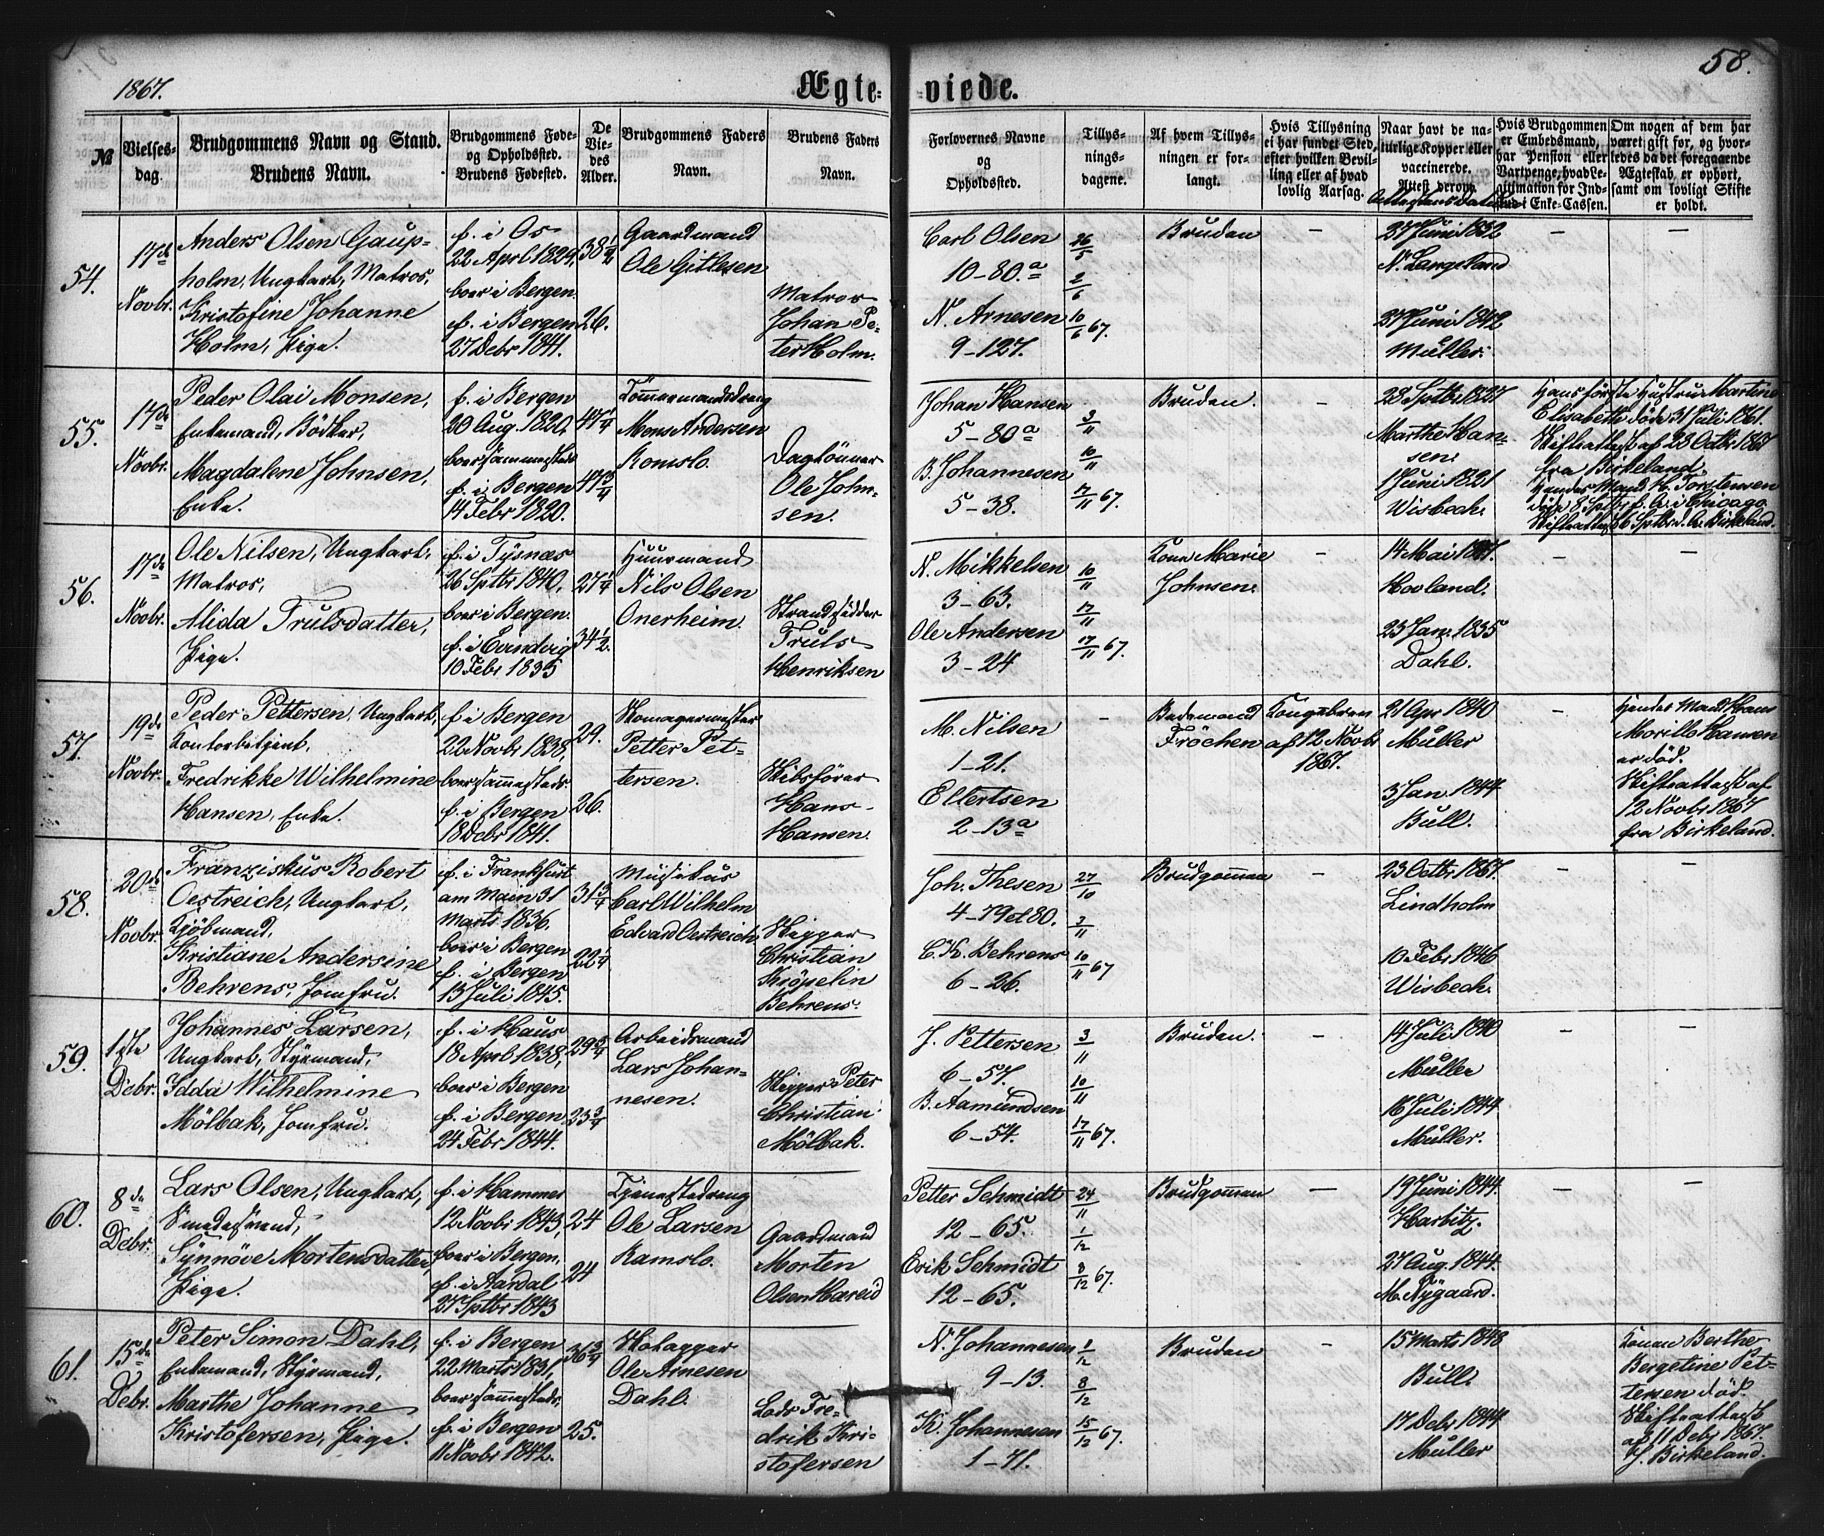 1867.
Ægte-
viede.
58.
№
Vielses-
dag.
Brudgommens Navn og Stand.
Brudens Navn.
Brudgommens Føde-
og Opholdssted.
Brudens Fødested.
De
Vie-
des
Alder.
Brudgommens Faders
Navn.
Brudens Faders
Navn.
Forlovernes Navne
og
Opholdssted.
Tillys-
nings-
dagene.
Af hvem Tillys-
ningen er for-
langt.
Hvis Tillysning
ei har fundet Sted,
efter hvilken Bevil-
ling eller af hvad
lovlig Aarsag.
Naar havt de na-
turlige Kopper eller
vaccinerede.
Attest derom.
Attestens Datum
Hvis Brudgommen
er Embedsmand,
har Pension eller
Vartpenge, hvad Le-
gitimation for Ind-
skud i Enke-Cassen.
Om nogen af dem har
været gift før, og hvor-
ledes da det foregaaende
Ægteskab er ophørt,
samt om lovligt Skifte
er holdt.
54.
17de
Novbr.
Anders Olsen Gaup-
holm, Ungkarl, Matros,
Kristofine Johanne
Holm, Pige.
f. i Os
22 April 1829,
boer i Bergen
f. i Bergen
27 Debr 1841.
38½
26.
Gaardmand
Ole Gitlesen
Matros
Johan Pe-
ter Holm.
Carl Olsen
10-80.a
N. Arnesen
9-127.
26/5
2/6
10/6 67.
Bruden
—
27 Juni 1832
N. Langeland
27 Juni 1842
Müller.
—
—
55.
17de
Novbr.
Peder Olai Monsen,
Enkemand, Bødker,
Magdalene Johnsen,
Enke.
f. i Bergen
20 Aug. 1820,
boer sammesteds
f. i Bergen
14 Febr 1820.
47¼
47¾
Tömmermandsdreng
Mons Andersen
Romslo.
Daglönner
Ole John-
sen.
Johan Hansen
5-80a
B. Johannesen
5-38.
3/11
10/11
17/11 67.
Bruden.
—
28 Sptbr 1827
Marthe Han-
sen.
1 Juni 1821
Wisbech.
Hans förste Hustru Martine
Elisabeth döde 31 Juli 1861.
Skifteattest af 28 Octbr 1867
fra Birkeland.
Hendes Mand H. Torstensen
döde 8 Sptbr f. A. i Chicago
Skifteattest 6 Sptbr d. A. Birkeland.
56.
17de
Novbr.
Ole Nilsen, Ungkarl,
Matros,
Alida Trulsdatter,
Pige.
f. i Tysnæs
26 Sptbr 1840,
boer i Bergen.
f. i Evindvig
10 Febr 1835
27¼
34½.
Huusmand
Nils Olsen
Onerheim
Strandsidder
Truls
Henriksen
N. Mikkelsen
3-63.
Ole Andersen
3-24
10/11
17/11
17/11 67.
Kone Marie
Johnsen.
—
14 Mai 1867.
Hovland.
23 Jan. 1835
Dahl.
—
—
57.
19de
Novbr.
Peder Pettersen, Ungkarl,
Kontorbetjent,
Fredrikke Wilhelmine
Hansen, Enke.
f. i Bergen
22 Novbr 1838,
boer sammesteds.
f. i Bergen
18 Debr 1841.
29.
26.
Skomagermester
Petter Pet-
tersen.
Skibsförer
Hans
Hansen.
M. Nilsen
1-21.
Ellertsen
2-13a
—
Bedemand
Fröchen
Kongebrev
af 12 Novbr
1867.
21 Apr 1840
Müller
3 Jan. 1844
Bull.
—
Hendes Mand Hans
Morillo Hansen
er död.
Skifteattest af
12 Novbr 1867
fra Birkeland.
58.
20de
Novbr.
Franziskus Robert
Oestreich, Ungkarl,
Kjöbmand,
Kristiane Andersine
Behrens, Jomfru.
f. i Frankfurt
am Main 31
Marts 1836.
boer i Bergen
f. i Bergen
13 Juli 1845.
31¾
22¼
Musikus
Carl Wilhelm
Edvard Oestreich
Skipper
Christian
Kröpelin
Behrens.
Joh. Thesen
4-79 et 80.
C. K. Behrens
6-26.
27/10
3/11
10/11 67
Brudgommen
—
23 Octbr 1867.
Lindholm
10 Febr 1846
Wisbech.
—
—
59.
1ste
Debr.
Johannes Larsen,
Ungkarl, Styrmand,
Idda Wilhelmine
Mölbak, Jomfru.
f. i Haus
18 April 1838,
boer i Bergen
f. i Bergen,
24 Febr 1844.
29¾
23¾
Arbeidsmand
Lars Johan-
nesen.
Skipper Peter
Christian
Mölbak.
J. Pettersen
6-57.
B. Aamundsen
6-54.
3/11
10/11
17/11 67.
Bruden.
—
14 Juli 1840
Müller
16 Juli 1844
Müller.
—
—
60.
8de
Debr.
Lars Olsen, Ungkarl,
Smedesvend,
Synnöve Mortensdatter,
Pige.
f. i Hammer
12 Novbr 1843,
boer i Bergen,
f. i Aardal
27 Sptbr 1843
24
24
Tjenestedreng
Ole Larsen
Ramslo.
Gaardmand
Morten
Olsen Hareid
Petter Schmidt
12-65.
Erik Schmidt
12-65.
24/11
1/12
8/12 67.
Brudgommen
—
19 Juni 1844.
Harbitz.
27 Aug. 1844.
M. Nygaard.
—
—
61.
15de
Debr.
Peter Simon Dahl,
Enkemand, Styrmand,
Marthe Johanne
Kristofersen, Pige.
f. i Bergen
22 Marts 1831,
boer sammesteds,
f. i Bergen
11 Novbr 1842.
36¾
25.
Ole Arnesen
Dahl.
Lods Fre-
drik Kri-
stofersen
N. Johannesen
9-13.
K. Johannesen
1-71.
1/12
8/12
15/12 67.
Bruden
—
15 Marts 1848
Bull.
17 Debr 1844
Müller
—
Konen Berthe
Bergetine Pet-
tersen död.
Skifteattest
af 11 Debr 1867.
f. Birkeland.